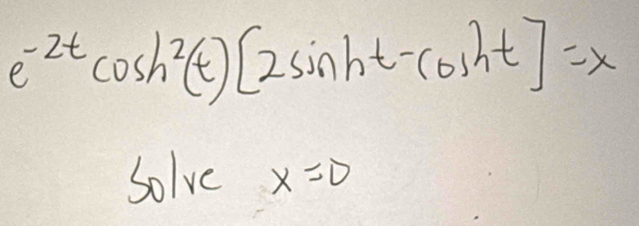 e⁻²ᵗ cosh²(t) [2 sinh t - cosh t] = x
Solve x = 0